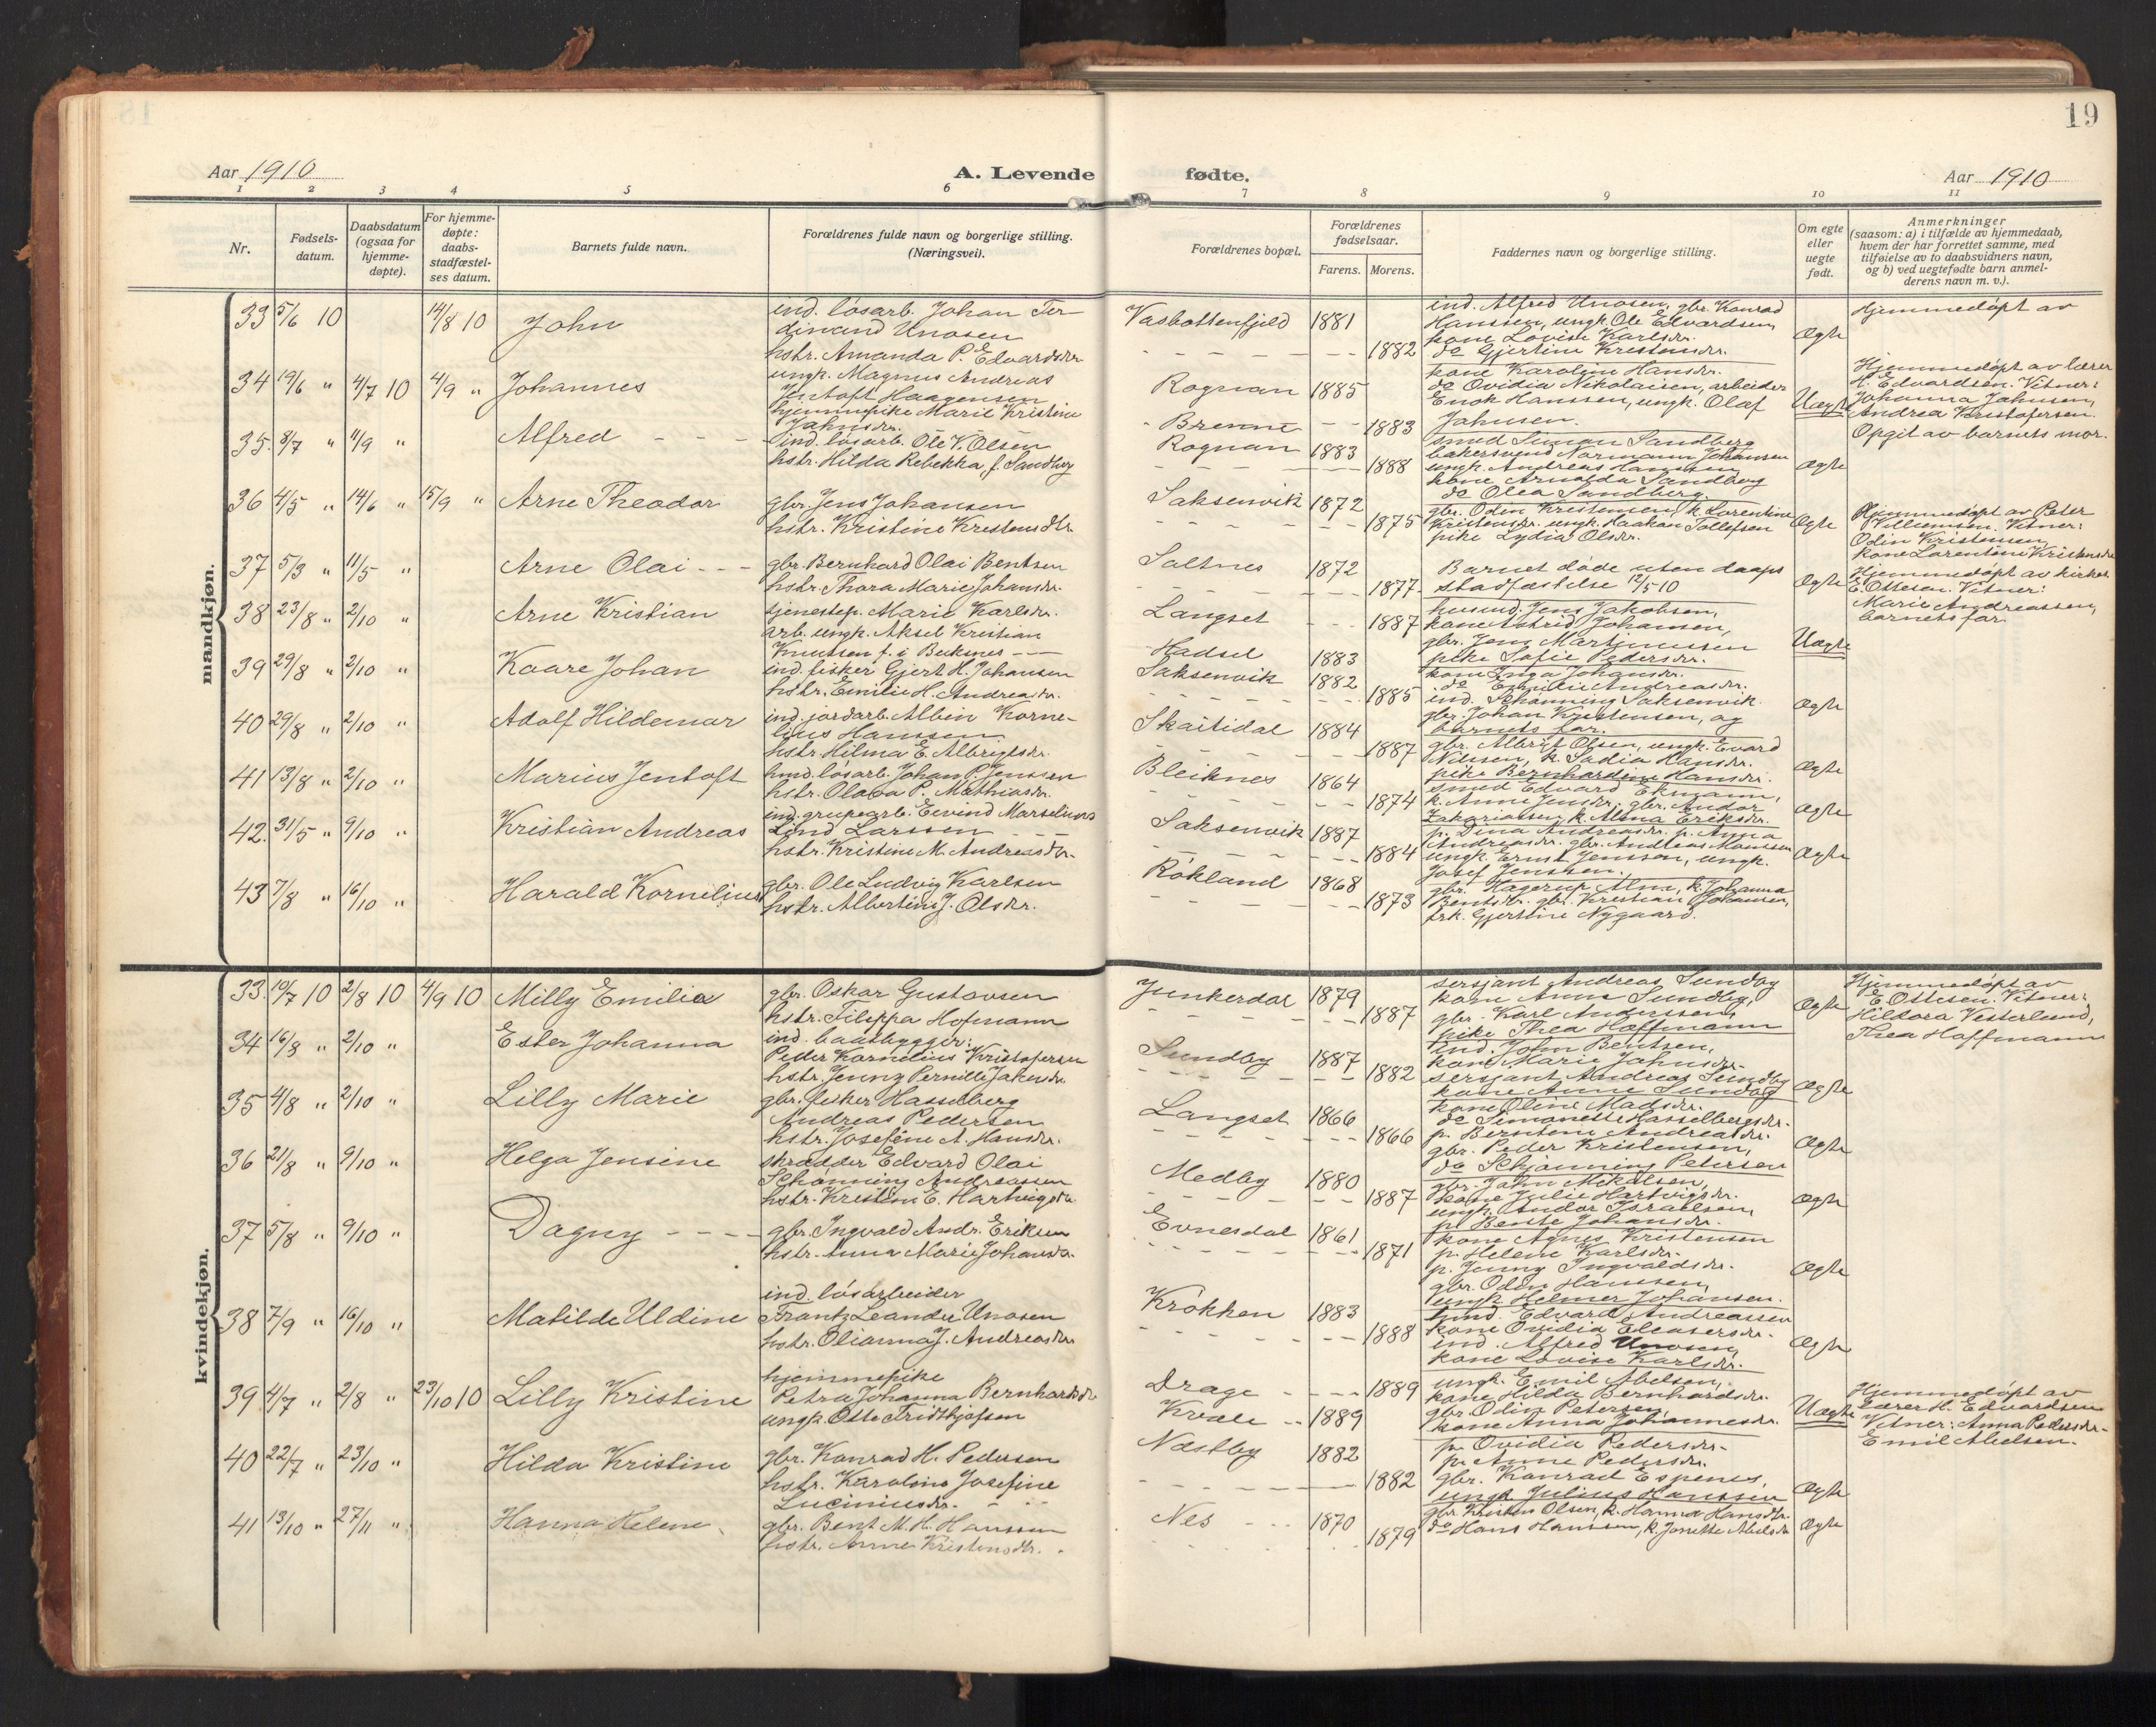 18
19
Aar 1910
A. Levende fødte.
Aar 1910
1 2 3 4 5 6 7 8 9 10 11
Nr.
Fødsels-
datum.
Daabsdatum
(ogsaa for
hjemme-
døpte).
For hjemme-
døpte:
daabs-
stadfæstel-
ses datum.
Barnets fulde navn.
Forældrenes fulde navn og borgerlige stilling.
(Næringsvei).
Forældrenes bopæl.
Forældrenes
fødselsaar.
Farens. Morens.
Faddernes navn og borgerlige stilling.
Om egte
eller
uegte
født.
Anmerkninger
(saasom: a) i tilfælde av hjemmedaab,
hvem der har forrettet samme, med
tilføielse av to daabsvidners navn,
og b) ved uegtefødte barn anmel-
derens navn m. v.).
mandkjøn.
33 5/6 10 14/8 10 John
ind. løsarb. Johan Fer-
dinand Unosen
hstr. Amanda P. Edvardsdr.
Vasbottenfjeld 1881
1882
ind. Alfred Unosen, gbr. Konrad
Hanssen, ungk. Ole Edvardsen,
kone Lovise Karlsdr.
do Gjertine Kristensdr.
Ægte
Hjemmedøpt av
34 19/6 " 4/7 10 4/9 " Johannes
ungk. Magnus Andreas
Jentoft Haagensen
hjemmepike Marie Kristine
Jahnsdr.
Rognan 1885
Brenne 1883
kone Karoline Hansdr.
do Ovidia Nikolaisen, arbeider
Enok Hanssen, ungk. Olaf
Jahnsen.
Uægte
Hjemmedøpt av lærer
H. Edvardsen. Vitner:
Johanna Jahnsen,
Andrea Kristofersen.
Opgit av barnets mor.
35. 8/7 " 11/9 " Alfred
ind. løsarb. Ole V. Olsen
hstr. Hilda Rebekka, f. Sandberg
Rognan 1883
1888
smed Simon Sandberg
bakersvend Normann Johansen
ungk. Andreas Hanssen
kone Arnolda Sandberg
do Olea Sandberg.
Ægte
36 4/5 " 14/6 " 15/9 " Arne Theodor
gbr. Jens Johansen
hstr. Kristine Kristensdtr.
Saksenvik 1872
1875
gbr. Odin Kristensen, k. Lorentine
Kristensdr. ungk. Haakon Tollefsen
pike Lydia Olsdr.
Ægte
Hjemmedøpt av Peter
Villumsen. Vitner:
Odin Kristensen,
kone Lorentine Kristensdr.
37 5/3 " 11/5 " Arne Olai
gbr. Bernhard Olai Bentsen
hstr. Thora Marie Johansdr.
Saltnes 1872
1877.
Barnet døde uten daaps
stadfæstelse 12/5 10
Ægte
Hjemmedøpt av kirkes.
E. Ottesen. Vitner:
Marie Andreassen,
barnets far
38 23/8 " 2/10 " Arne Kristian
tjenestep. Marie Karlsdr.
arb. ungk. Aksel Kristian
Knutsen f. i Buksnes
Langset 1887
Hadsel 1883
husmd. Jens Jakobsen,
kone Astrid Johansen,
gbr. Jens Martinussen
pike Sofie Pedersdr.
Uægte
39 29/8 " 2/10 " Kaare Johan
ind. fisker Gjert H. Johansen
hstr. Emilie H. Andreasdr.
Saksenvik 1882
1885
kone Inga Johansdr.
do Emilie Andreasdr.
ind. Schønning Saksenvik
gbr. Johan Kristensen, og
barnets far.
Ægte
40 29/8 " 2/10 " Adolf Hildemar
ind. jordarb. Albin Korne-
lius Hanssen.
hstr. Hilma E. Albrigtsdr.
Skaitidal 1884
1887
gbr. Albrigt Olsen, ungk. Evard
Nilssen, k. Sadia Hansdr.
pike Bernhardine Hansdr.
Ægte
41 13/8 " 2/10 " Marius Jentoft
hmd. løsarb. Johan P. Jenssen
hstr. Olava P. Mathiasdr.
Bleiknes 1864
1874
smed Edvard Ekmann,
k. Anne Jensdr. gbr. Andor
Zakariassen, k. Alma Eriksdr.
Ægte
42. 31/5 " 9/10 " Kristian Andreas
ind. grupearb. Eivind Marselius
Lind Larssen
hstr. Kristine M. Andreasdr.
Saksenvik 1887
1884
p. Dina Andreasdr. p. Anna
Andreasdr. gbr. Andreas Monssen
ungk. Ernst Jenssen, ungk.
Josef Jenssen.
Ægte
43 7/8 " 16/10 " Harald Kornelius
gbr. Ole Ludvig Karlsen
hstr. Albertine J. Olsdr.
Røkland 1868
1873
gbr. Hagerup Alm, k. Johanna
Bentsdr. gbr. Kristian Johansen,
frk. Gjertine Nygaard.
kvindekjøn.
33. 10/7 10 2/8 10 4/9 10 Milly Emilia
gbr. Oskar Gustavsen
hstr. Fileppa Hofmann
Junkerdal 1879
1887
sersjant Andreas Sundby
kone Anna Sundby,
gbr. Karl Anderssen,
pike Thea Hoffmann
Ægte
Hjemmedøpt av
E. Ottesen. Vitner:
Hildora Vesterlund,
Thea Hoffmann
34 16/8 " 2/10 " Ester Johanna
ind. baatbygger:
Peder Kornelius Kristofersen
hstr. Jenny Pernille Jakobsdr.
Sundby 1887
1882
ind. John Bentsen,
kone Marie Jahnsdr.
sersjant Andreas Sundby
kone Anna Sundby
Ægte
35 4/8 " 2/10 " Lilly Marie
gbr. fisker Hasselberg
Andreas Pedersen
hstr. Josefine A. Hansdr.
Langset 1866
1866
kone Oline Madsdr.
do Simonette Hasselbergsdr.
p. Berntine Andreasdr.
gbr. Peder Kristensen,
do Schjønning Petersen
Ægte
36 21/8 " 9/10 " Helga Jensine
skrædder Edvard Olai
Schønning Andreassen
hstr. Kristine E. Hartvigsdr.
Medby 1880
1887
gbr. Jahn Mikalsen,
kone Julie Hartvigsdr.
ungk. Andor Israelsen,
p. Bente Johansdr.
Ægte
37 5/8 " 9/10 " Dagny
gbr. Ingvald Andr. Eriksen
hstr. Anna Marie Johansdr.
Evnesdal 1861
1871
kone Agnes Kristensen
p. Helene Karlsdr.
p. Jenny Ingvaldsdr.
gbr. Odin Hanssen,
ungk. Helmer Johansen.
Ægte
38 7/9 " 16/10 " Matilde Uldine
ind. løsarbeider
Frantz Leander Unosen
hstr. Olianna J. Andreasdr.
Krokken 1883
1888
hmd. Edvard Andreassen
kone Ovidia Eleasersdr.
ind. Alfred Unosen,
kone Lovise Karlsdr.
Ægte
39 4/7 " 2/8 " 23/10 10 Lilly Kristine
hjemmepike
Petra Johanna Bernhardsdr.
ungk. Otto Fridthjofsen
Drage 1889
Kvæle 1889
ungk. Emil Abelsen,
kone Hilda Bernhardsdr.
gbr. Odin Petersen,
kone Anna Johannesdr.
Uægte
Hjemmedøpt av
lærer H. Edvardsen
Vitner: Anna Pedersdr.
Emil Abelsen.
40 22/7 " 23/10 " Hilda Kristine
gbr. Konrad H. Pedersen
hstr. Karoline Josefine
Luciniusdr.
Næstby 1882
1882
p. Ovidia Pedersdr.
p. Anne Pedersdr.
gbr. Konrad Espenes,
ungk. Julius Hanssen
Ægte
41 13/10 " 27/11 " Hanna Helene
gbr. Bent M. H. Hanssen
hstr. Anne Kristensdtr.
Nes 1870
1879
gbr. Kristen Olsen, k. Hanna Hansdtr.
do Hans Hanssen, k. Jonette Abelsdr
Ægte